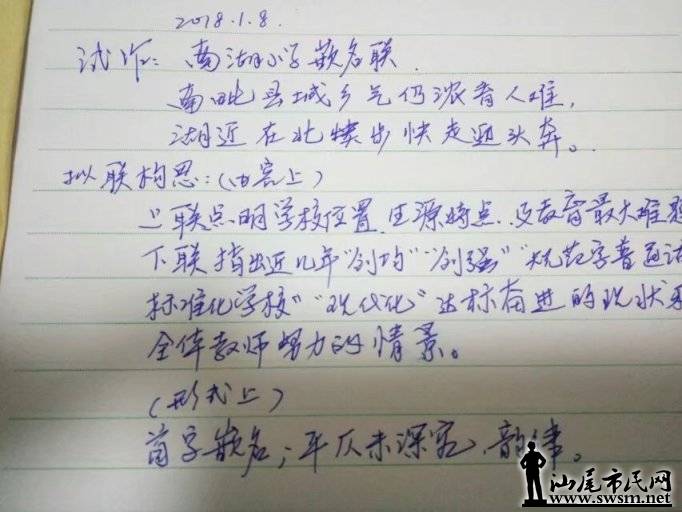 2018.1.8.
试作:南湖小学嵌名联.
南毗县城乡气仍浓育人难,
湖近在北犊步快走迎头奔。
拟联构思:(内容上)
上联点明学校位置、生源特点、及教育最大难题
下联指出近几年"创均""创强""规范字普通话
标准化学校""现代化"达标奋进的现状及
全体教师努力的情景。
(形式上)
首字嵌名;平仄未深究、韵律。
汕尾市民网
www.swsm.net